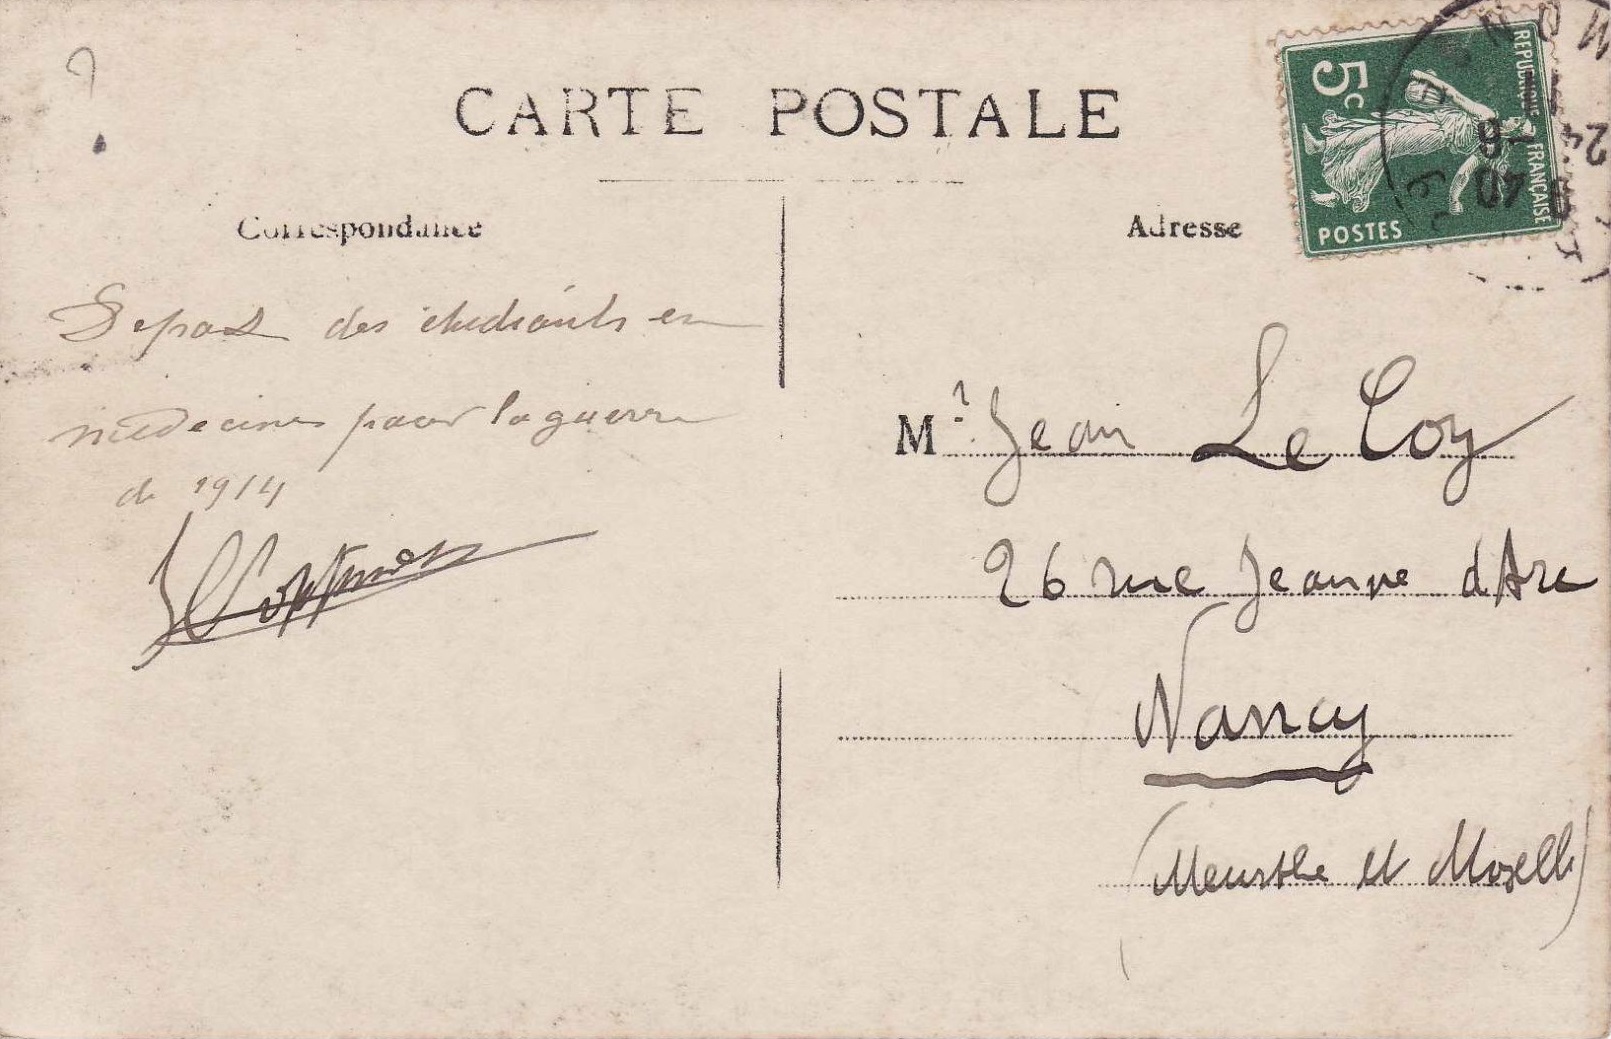 CARTE POSTALE
5c
REPUBLIQUE FRANÇAISE
POSTES
Correspondance
Depart des étudiants en
médecine pour la guerre
de 1914
Adresse
Mr. Jean Le Coz
26 rue Jeanne d'Arc
Nancy
(Meurthe et Moselle)